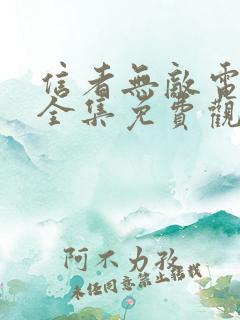 信者無敵電
全集免費觀
阿不力孜
未经同意禁止搭载